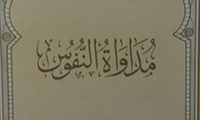 مُدَاوَاةُ النُّفُوسُ